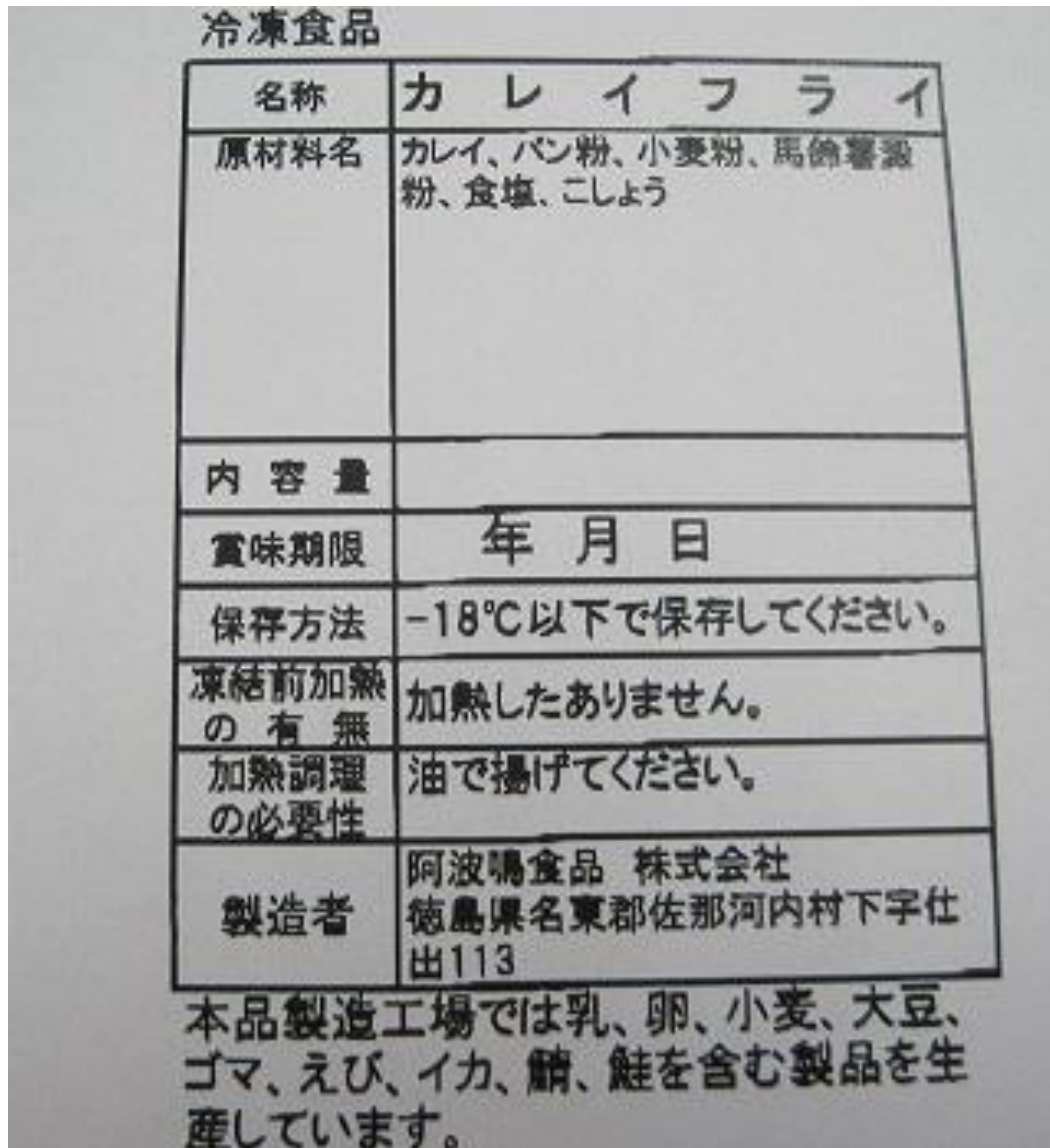 冷凍食品
名称 カレイフライ
原材料名 カレイ、パン粉、小麦粉、馬鈴薯澱
粉、食塩、こしょう
内容量
賞味期限 年 月 日
保存方法 -18℃以下で保存してください。
凍結前加熱
の有無 加熱したありません。
加熱調理
の必要性 油で揚げてください。
製造者 阿波鳴食品 株式会社
徳島県名東郡佐那河内村下字仕
出113
本品製造工場では乳、卵、小麦、大豆、
ゴマ、えび、イカ、鯖、鮭を含む製品を生
産しています。